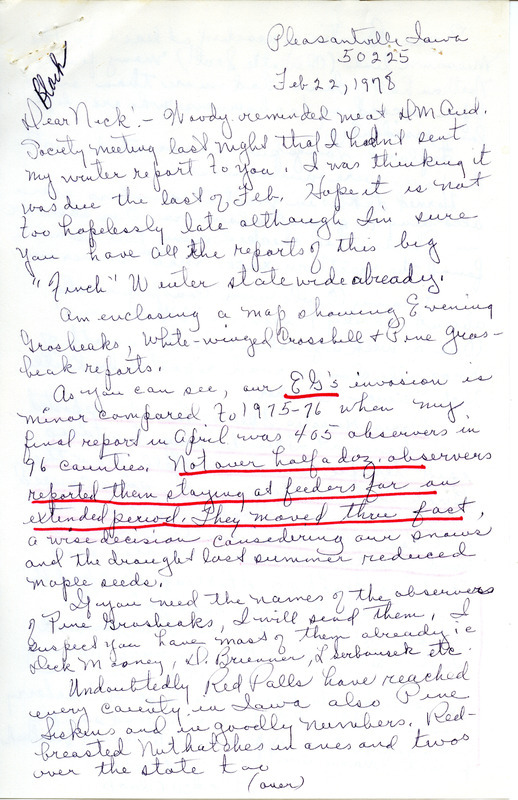 Pleasantville Iowa
50225
Feb 22, 1978
Black
Dear Nick:- Woody reminded me at DM Aud.
Society meeting last night that I hadn't sent
my winter report to you. I was thinking it
was due the last of Feb. Hope it is not
too hopelessly late although I'm sure
you have all the reports of this big
"Finch" Winter statewide already.
Am enclosing a map showing Evening
Grosbeaks, White-winged Crossbill + Pine Gros-
beak reports.
As you can see, our EG's invasion is
minor compared to 1975-76 when my
final report in April was 405 observers in
96 counties. Not over half a doz. observers
reported them staying at feeders for an
extended period. They moved thru fast,
a wise decision considering our snows
and the drought last summer reduced
maple seeds.
If you need the names of the observers
of Pine Grosbeaks, I will send them, I
suspect you have most of them already ie
Dick Mooney, D. Brenner, L Serbousek etc.
Undoubtedly Red Polls have reached
every county in Iowa also Pine
Siskins and in goodly numbers. Red-
breasted Nuthatches in ones and twos
over the state too
(over)